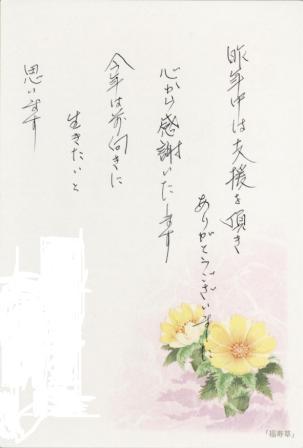 昨年中は支援を頂き
ありがとうございました
心から感謝いたします
今年は前向きに
生きたいと
思います
「福寿草」